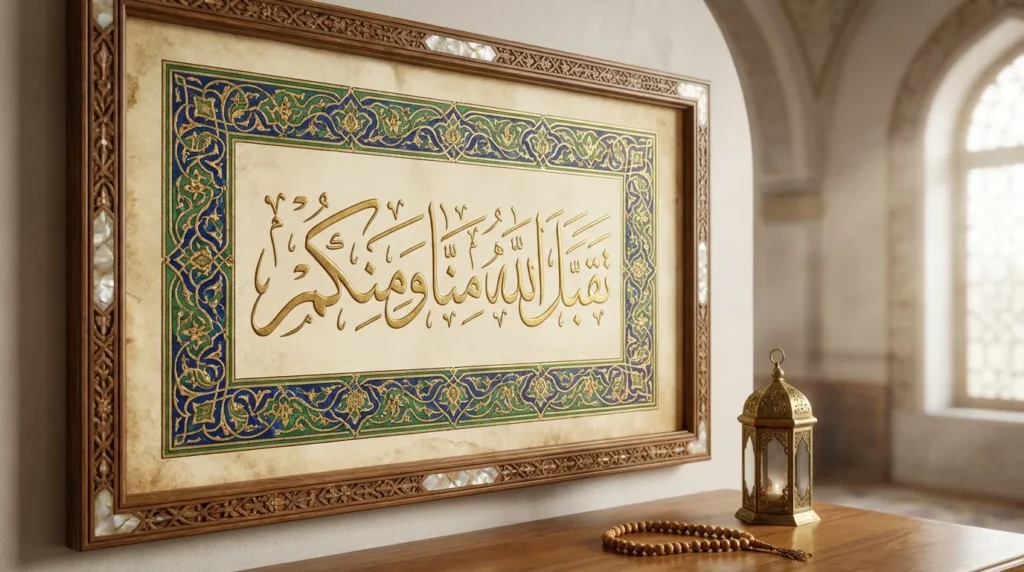 تقبل الله منا ومنكم